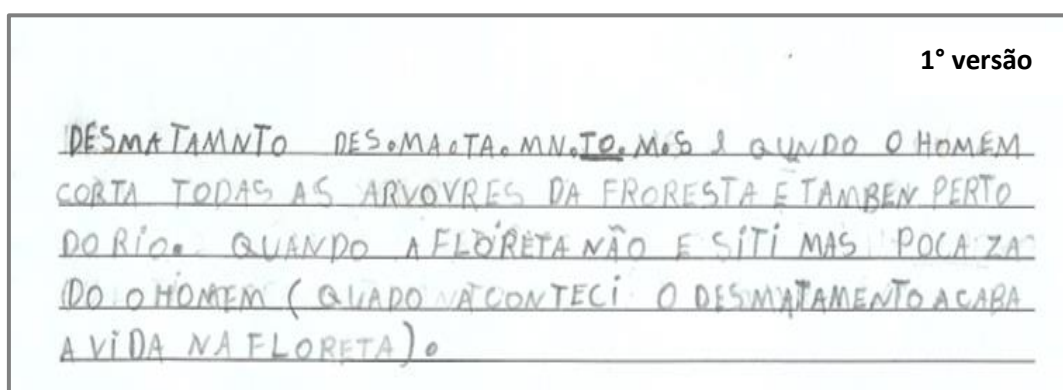 1° versão
DESMATAMNTO DES.MA.TA.MN.TO.M.S I QUNDO O HOMEM
CORTA TODAS AS ARVOVRES DA FRORESTA E TAMBEN PERTO
DO RÍO. QUANDO A FLORETA NÃO E SíTi MAS POCA ZA
DO O HOMEM (QUADO ACONTECi O DESMATAMENTO ACABA
A ViDA NA FLORETA).